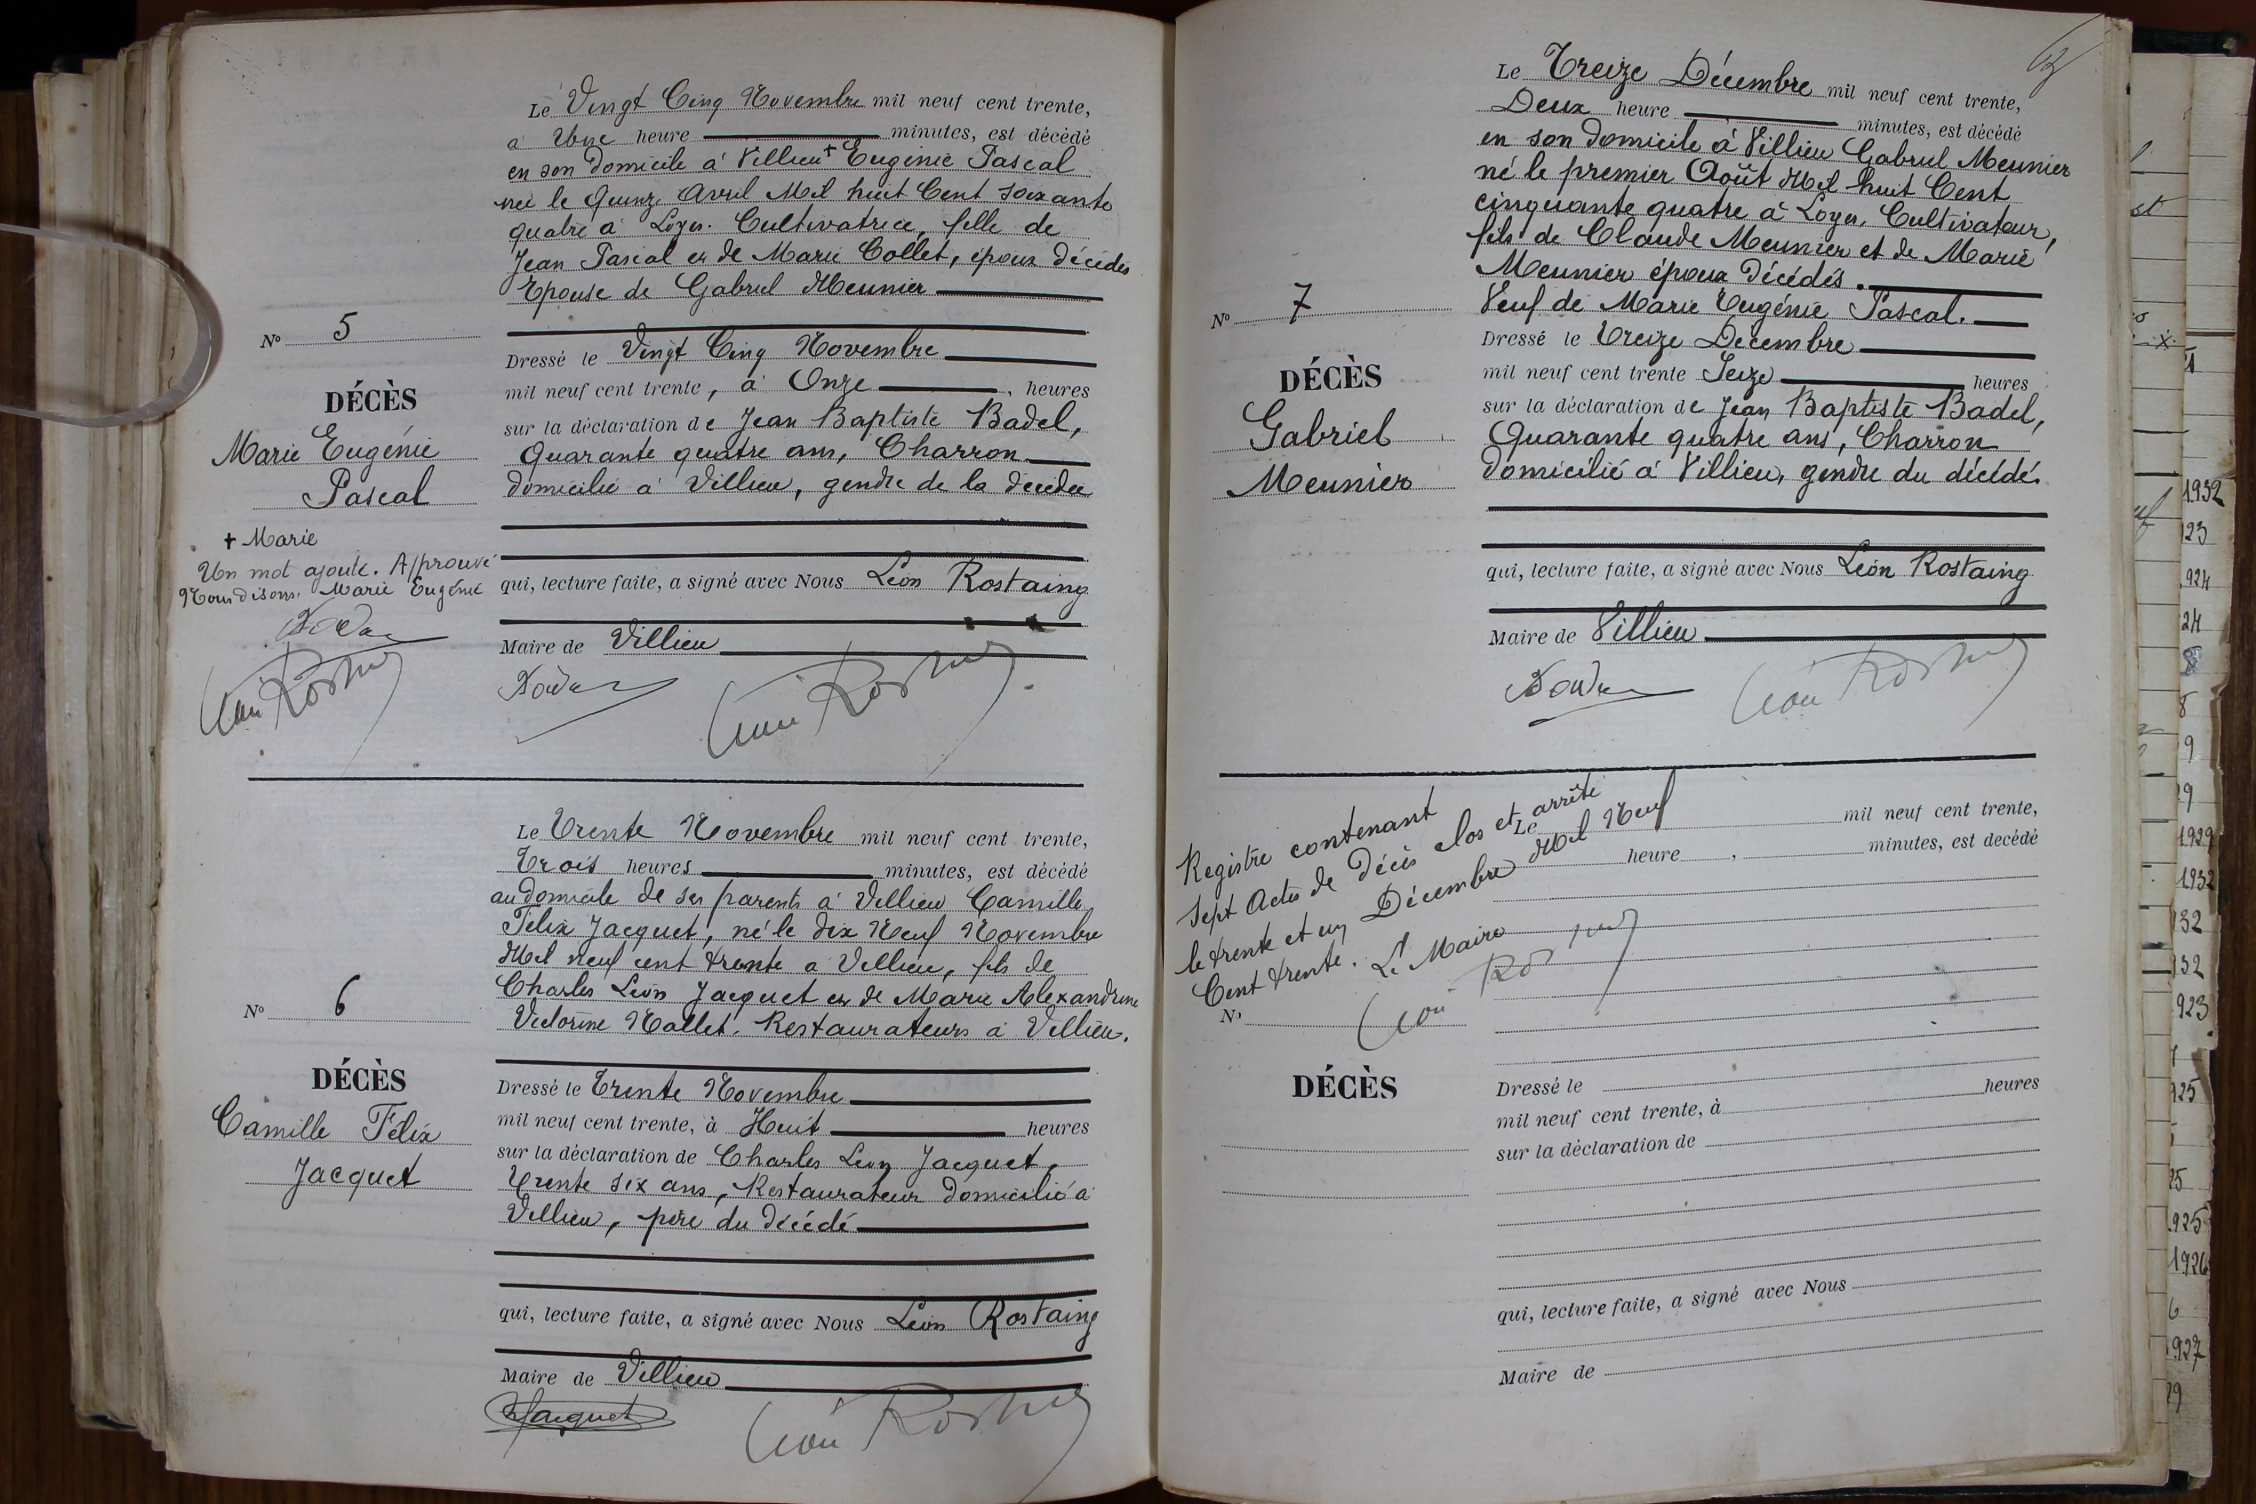 Le Vingt Cinq Novembre mil neuf cent trente,
à Une heure minutes, est décédé
en son domicile à Villieu + Eugénie Pascal
née le Quinze Avril Mil huit Cent soixante
quatre à Loyes. Cultivatrice, fille de
Jean Pascal et de Marie Collet, époux décédés
Epouse de Gabriel Meunier
N° 5
Dressé le Vingt Cinq Novembre
mil neuf cent trente, à Onze heures
DÉCÈS
sur la déclaration de Jean Baptiste Badel,
Marie Eugénie
Quarante quatre ans, Charron
Pascal
domicilié à Villieu, gendre de la décédée
+ Marie
Un mot ajouté. Approuvé
Nous disons. Marie Eugénie
qui, lecture faite, a signé avec Nous Léon Rostaing
Maire de Villieu
Léon Rostaing
Léon Rostaing
Le Trente Novembre mil neuf cent trente,
Trois heures minutes, est décédé
au domicile de ses parents à Villieu Camille
Félix Jacquet, né le dix Neuf Novembre
Mil neuf cent trente à Villieu, fils de
Charles Léon Jacquet et de Marie Alexandrine
Victorine Nallet. Restaurateurs à Villieu.
N° 6
DÉCÈS
Dressé le Trente Novembre
Camille Félix
mil neuf cent trente, à Huit heures
Jacquet
sur la déclaration de Charles Léon Jacquet,
Trente six ans, Restaurateur domicilié à
Villieu, père du décédé
qui, lecture faite, a signé avec Nous Léon Rostaing
Maire de Villieu
Jacquet
Léon Rostaing
Le Treize Décembre mil neuf cent trente,
Deux heure minutes, est décédé
en son domicile à Villieu Gabriel Meunier
né le premier Août Mil huit Cent
cinquante quatre à Loyes, Cultivateur,
fils de Claude Meunier et de Marie
Meunier époux décédés.
Veuf de Marie Eugénie Pascal.
N° 7
Dressé le Treize Décembre
DÉCÈS
mil neuf cent trente Seize heures
Gabriel
sur la déclaration de Jean Baptiste Badel,
Quarante quatre ans, Charron
Meunier
domicilié à Villieu, gendre du décédé.
qui, lecture faite, a signé avec Nous Léon Rostaing
Maire de Villieu
Léon Rostaing
Registre contenant
sept Actes de Décès clos et arrêté
le trente et un Décembre Mil Neuf
Cent trente. Le Maire
Léon Rostaing
Le mil neuf cent trente,
heure, minutes, est decédé
N°
DÉCÈS
Dressé le
mil neuf cent trente, à heures
sur la déclaration de
qui, lecture faite, a signé avec Nous
Maire de
1932
23
924
24
8
9
1929
1932
132
132
923
925
25
925
1926
6
927
29